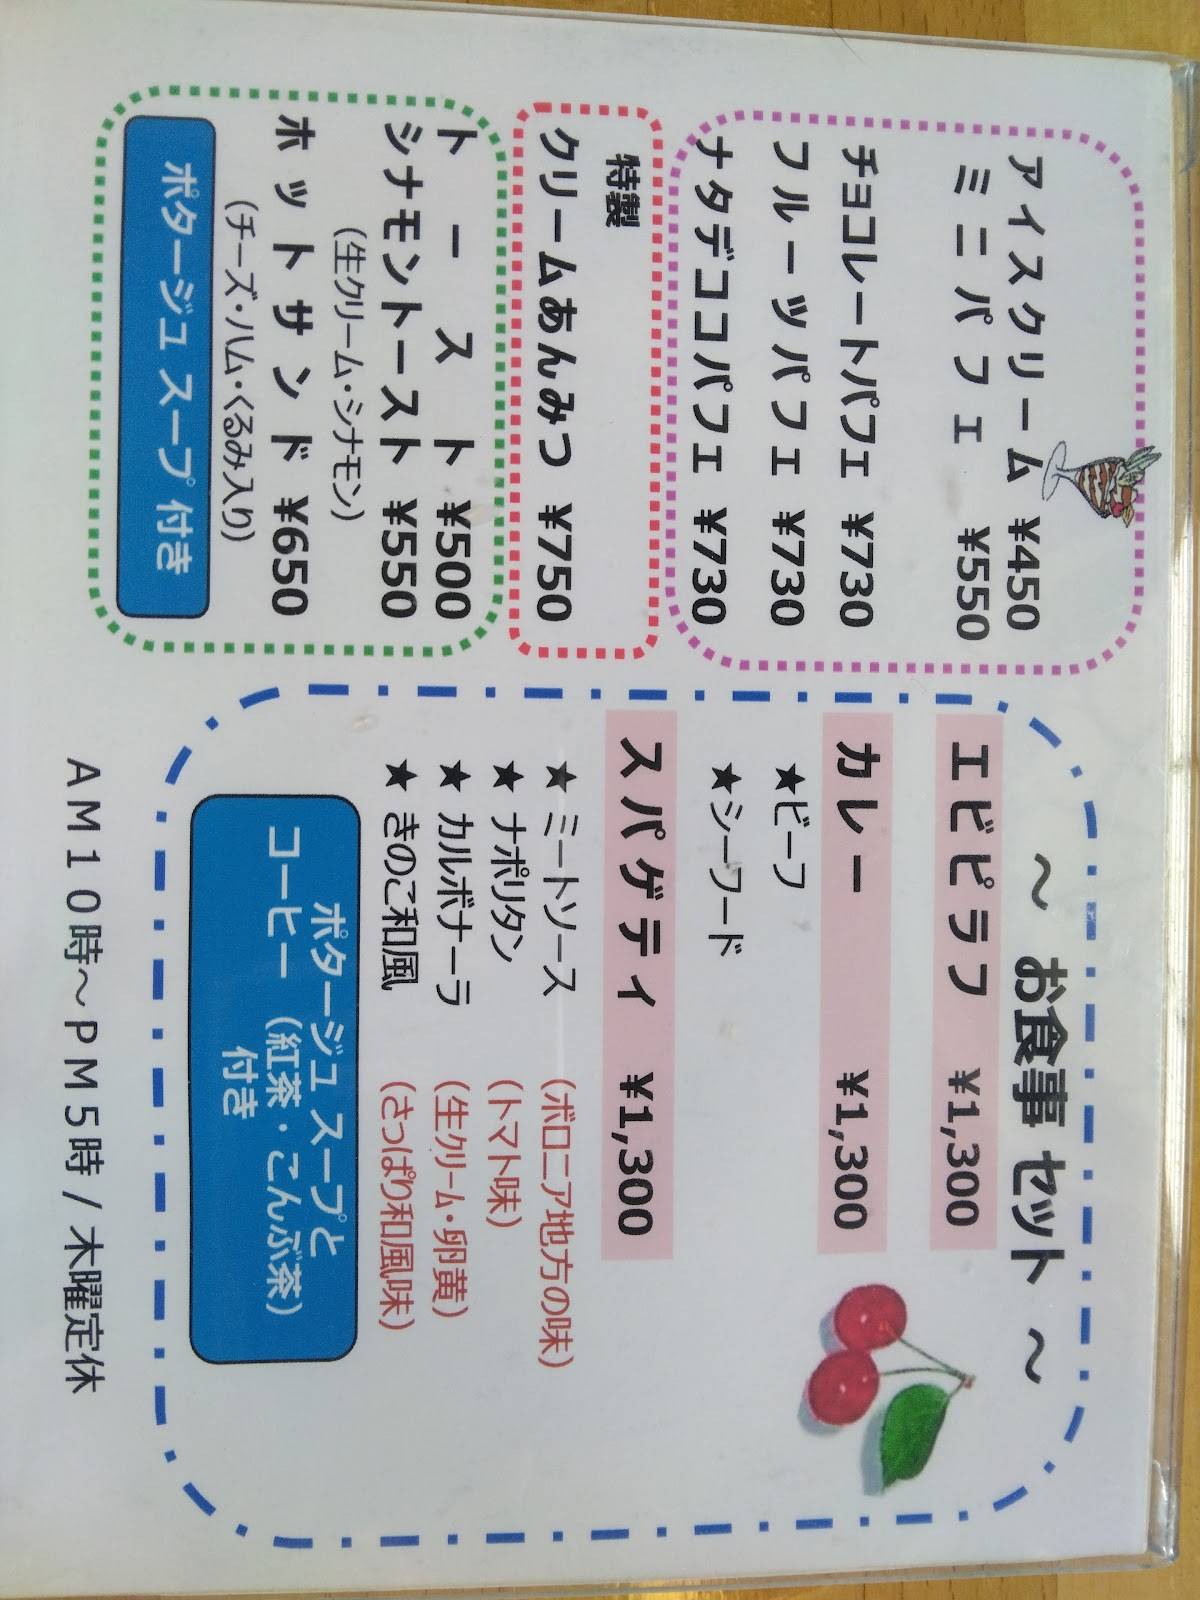 アイスクリーム ¥450
ミニパフェ ¥550
チョコレートパフェ ¥730
フルーツパフェ ¥730
ナタデココパフェ ¥730
特製
クリームあんみつ ¥750
トースト ¥500
シナモントースト ¥550
(生クリーム・シナモン)
ホットサンド ¥650
(チーズ・ハム・くるみ入り)
ポタージュ スープ 付き
～ お食事 セット ～
エビピラフ ¥1,300
カレー ¥1,300
★ビーフ
★シーフード
スパゲティ ¥1,300
★ ミートソース (ボロニア地方の味)
★ ナポリタン (トマト味)
★ カルボナーラ (生クリーム・卵黄)
★ きのこ和風 (さっぱり和風味)
ポタージュ スープと
コーヒー (紅茶・こんぶ茶)
付き
AM10時～PM5時 / 木曜定休